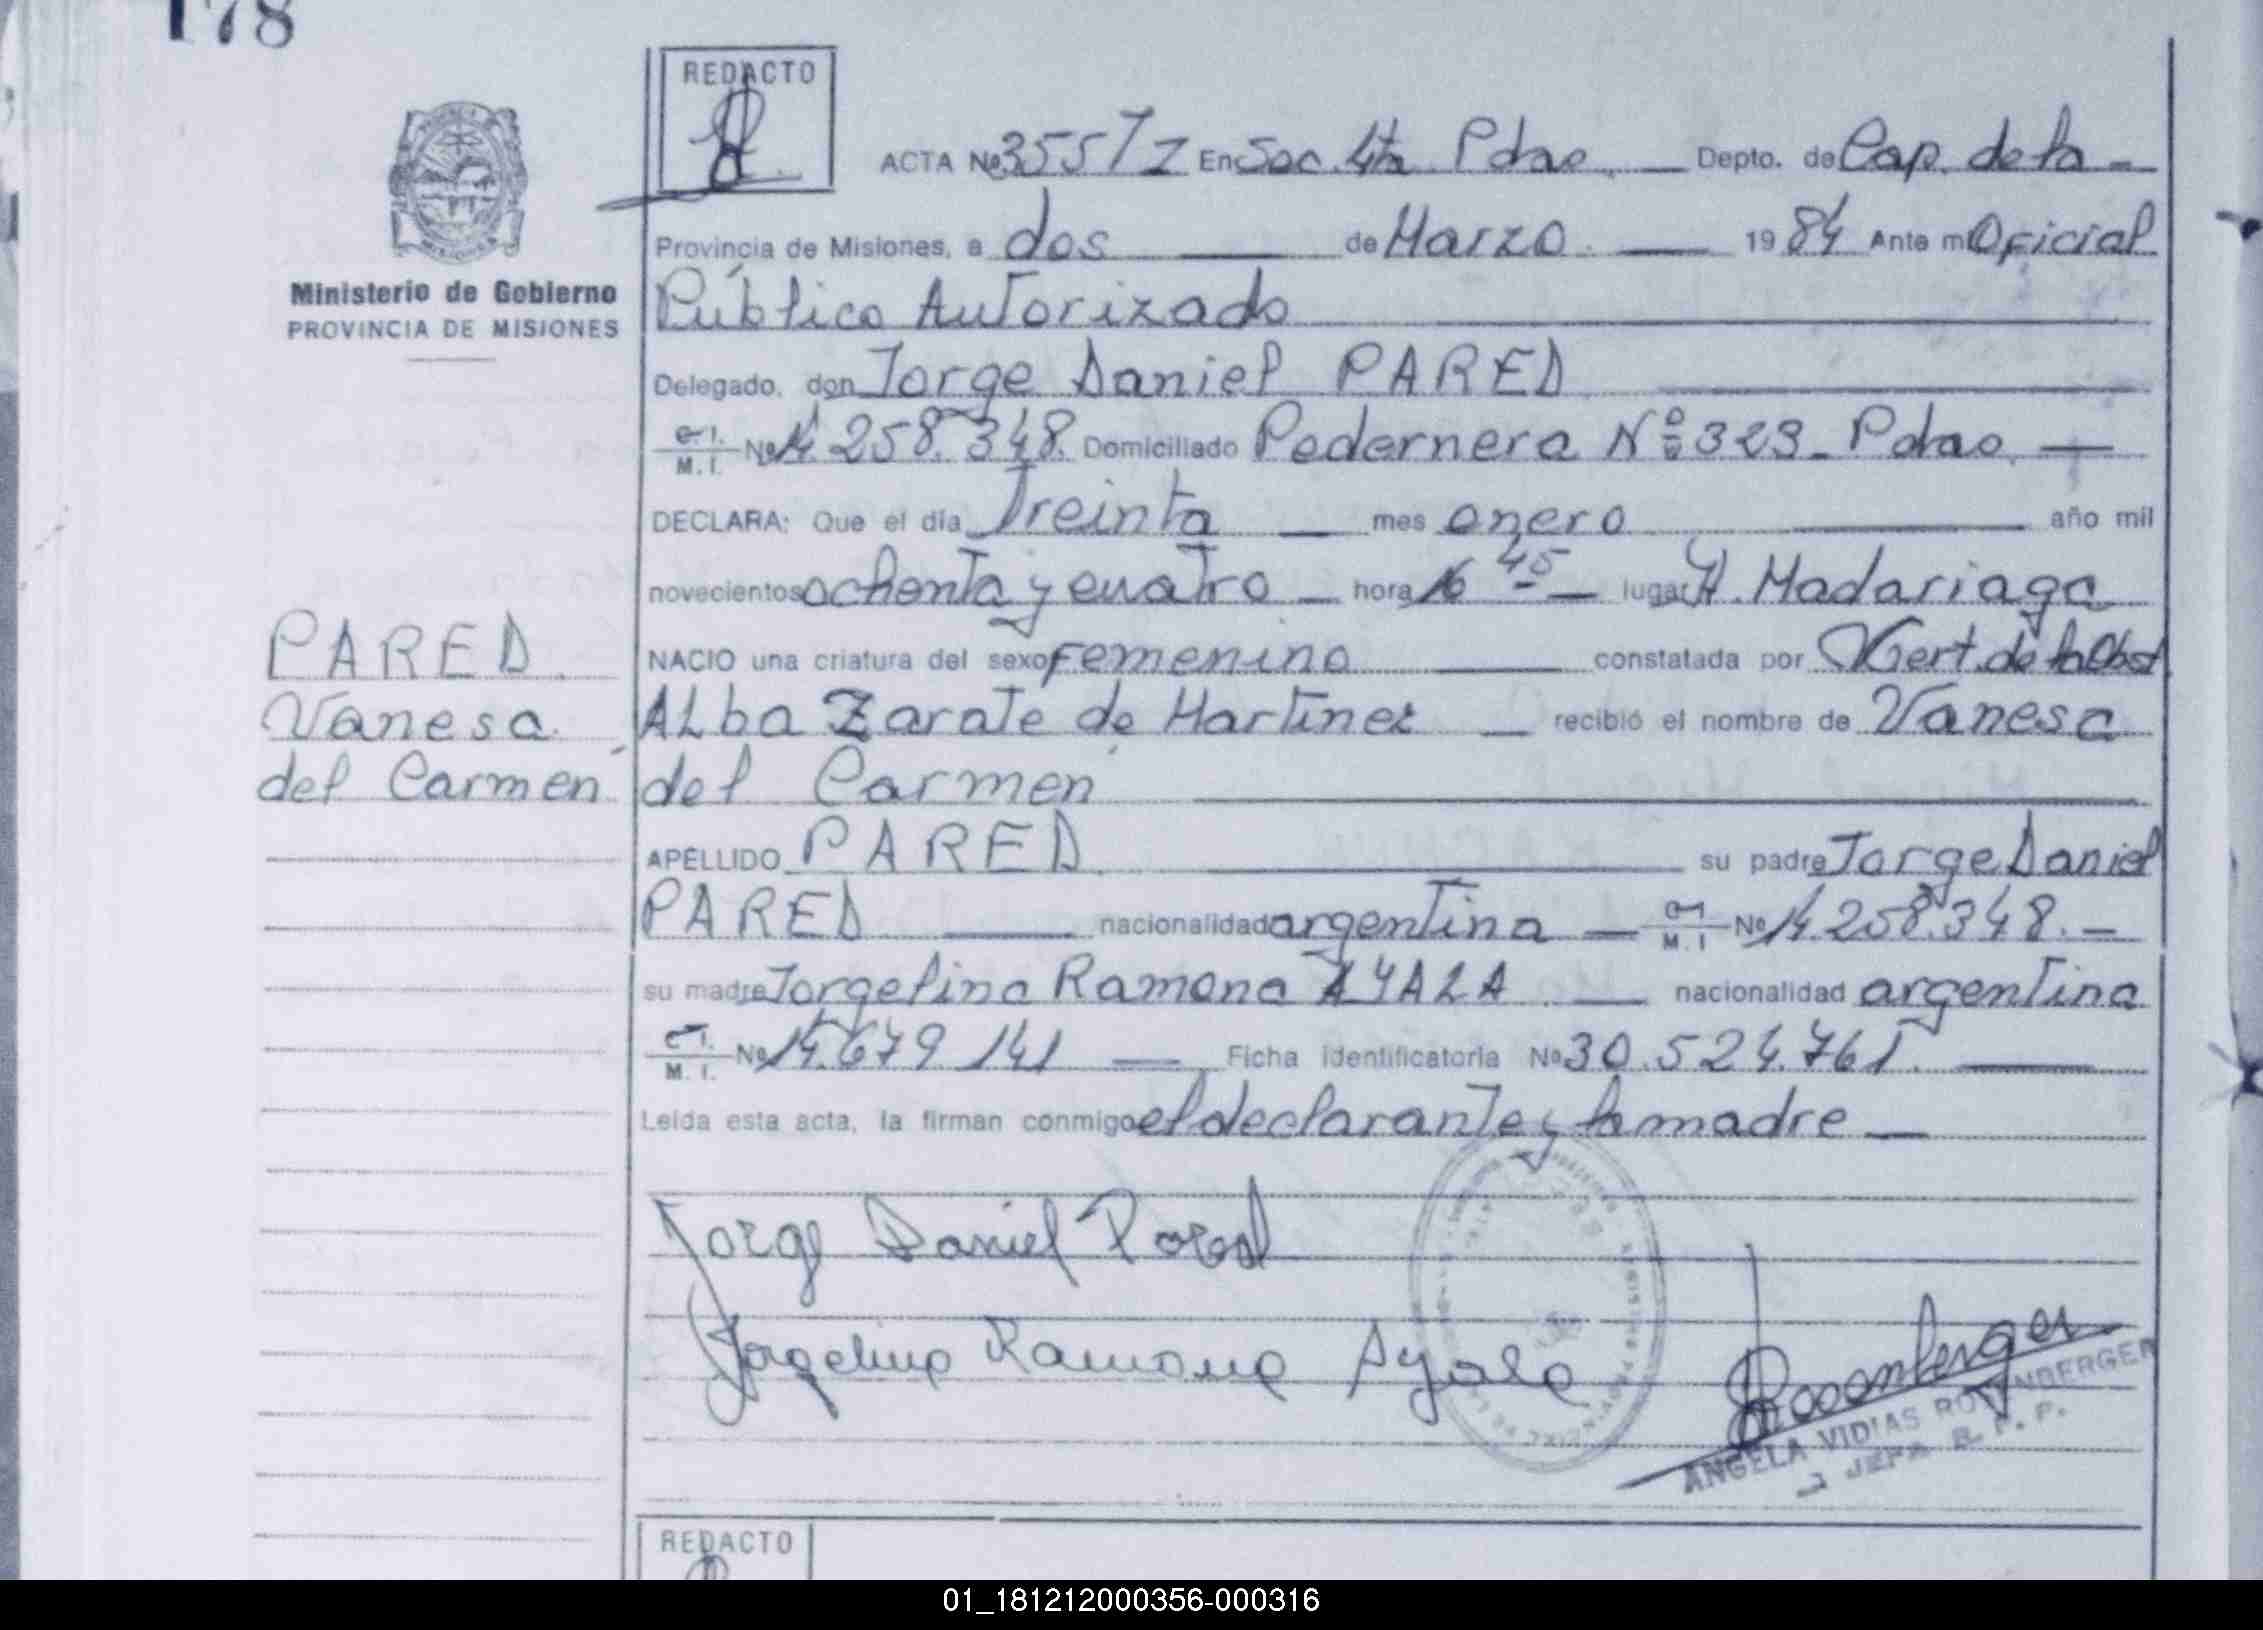 178
REDACTO
ACTA Nº 355 T I En Sec. 4ta Pdas. Depto. de Cap. de la
Provincia de Misiones, a dos de Marzo 19 84 Ante mi Oficial
Ministerio de Gobierno
PROVINCIA DE MISIONES
Público Autorizado
Delegado, don Jorge Daniel PARED
C. I.
M. I. Nº 14.258.348. Domiciliado Pedernera Nº 323 - Pdas.
DECLARA: Que el día Treinta mes enero año mil
novecientos ochenta y cuatro hora 16 45 lugar H. Madariaga
PARED NACIO una criatura del sexo femenino constatada por Cert. de la Obst
Vanesa ALba Zarate de Martinez recibió el nombre de Vanesa
del Carmen del Carmen
APELLIDO PARED su padre Jorge Daniel
PARED nacionalidad argentina C. I. M. I Nº 14.258.348.-
su madre Jorgelina Ramona AYALA nacionalidad argentina
C. I.
M. I. Nº 14.679.141 Ficha identificatoria Nº 30.524.761.
Leída esta acta, la firman conmigo el declarante y la madre
Jorge Daniel Pared
Jorgelina Ramona Ayala
ANGELA VIDIAS ROSENBERGER
JEFA R. P. P.
REDACTO
01_181212000356-000316